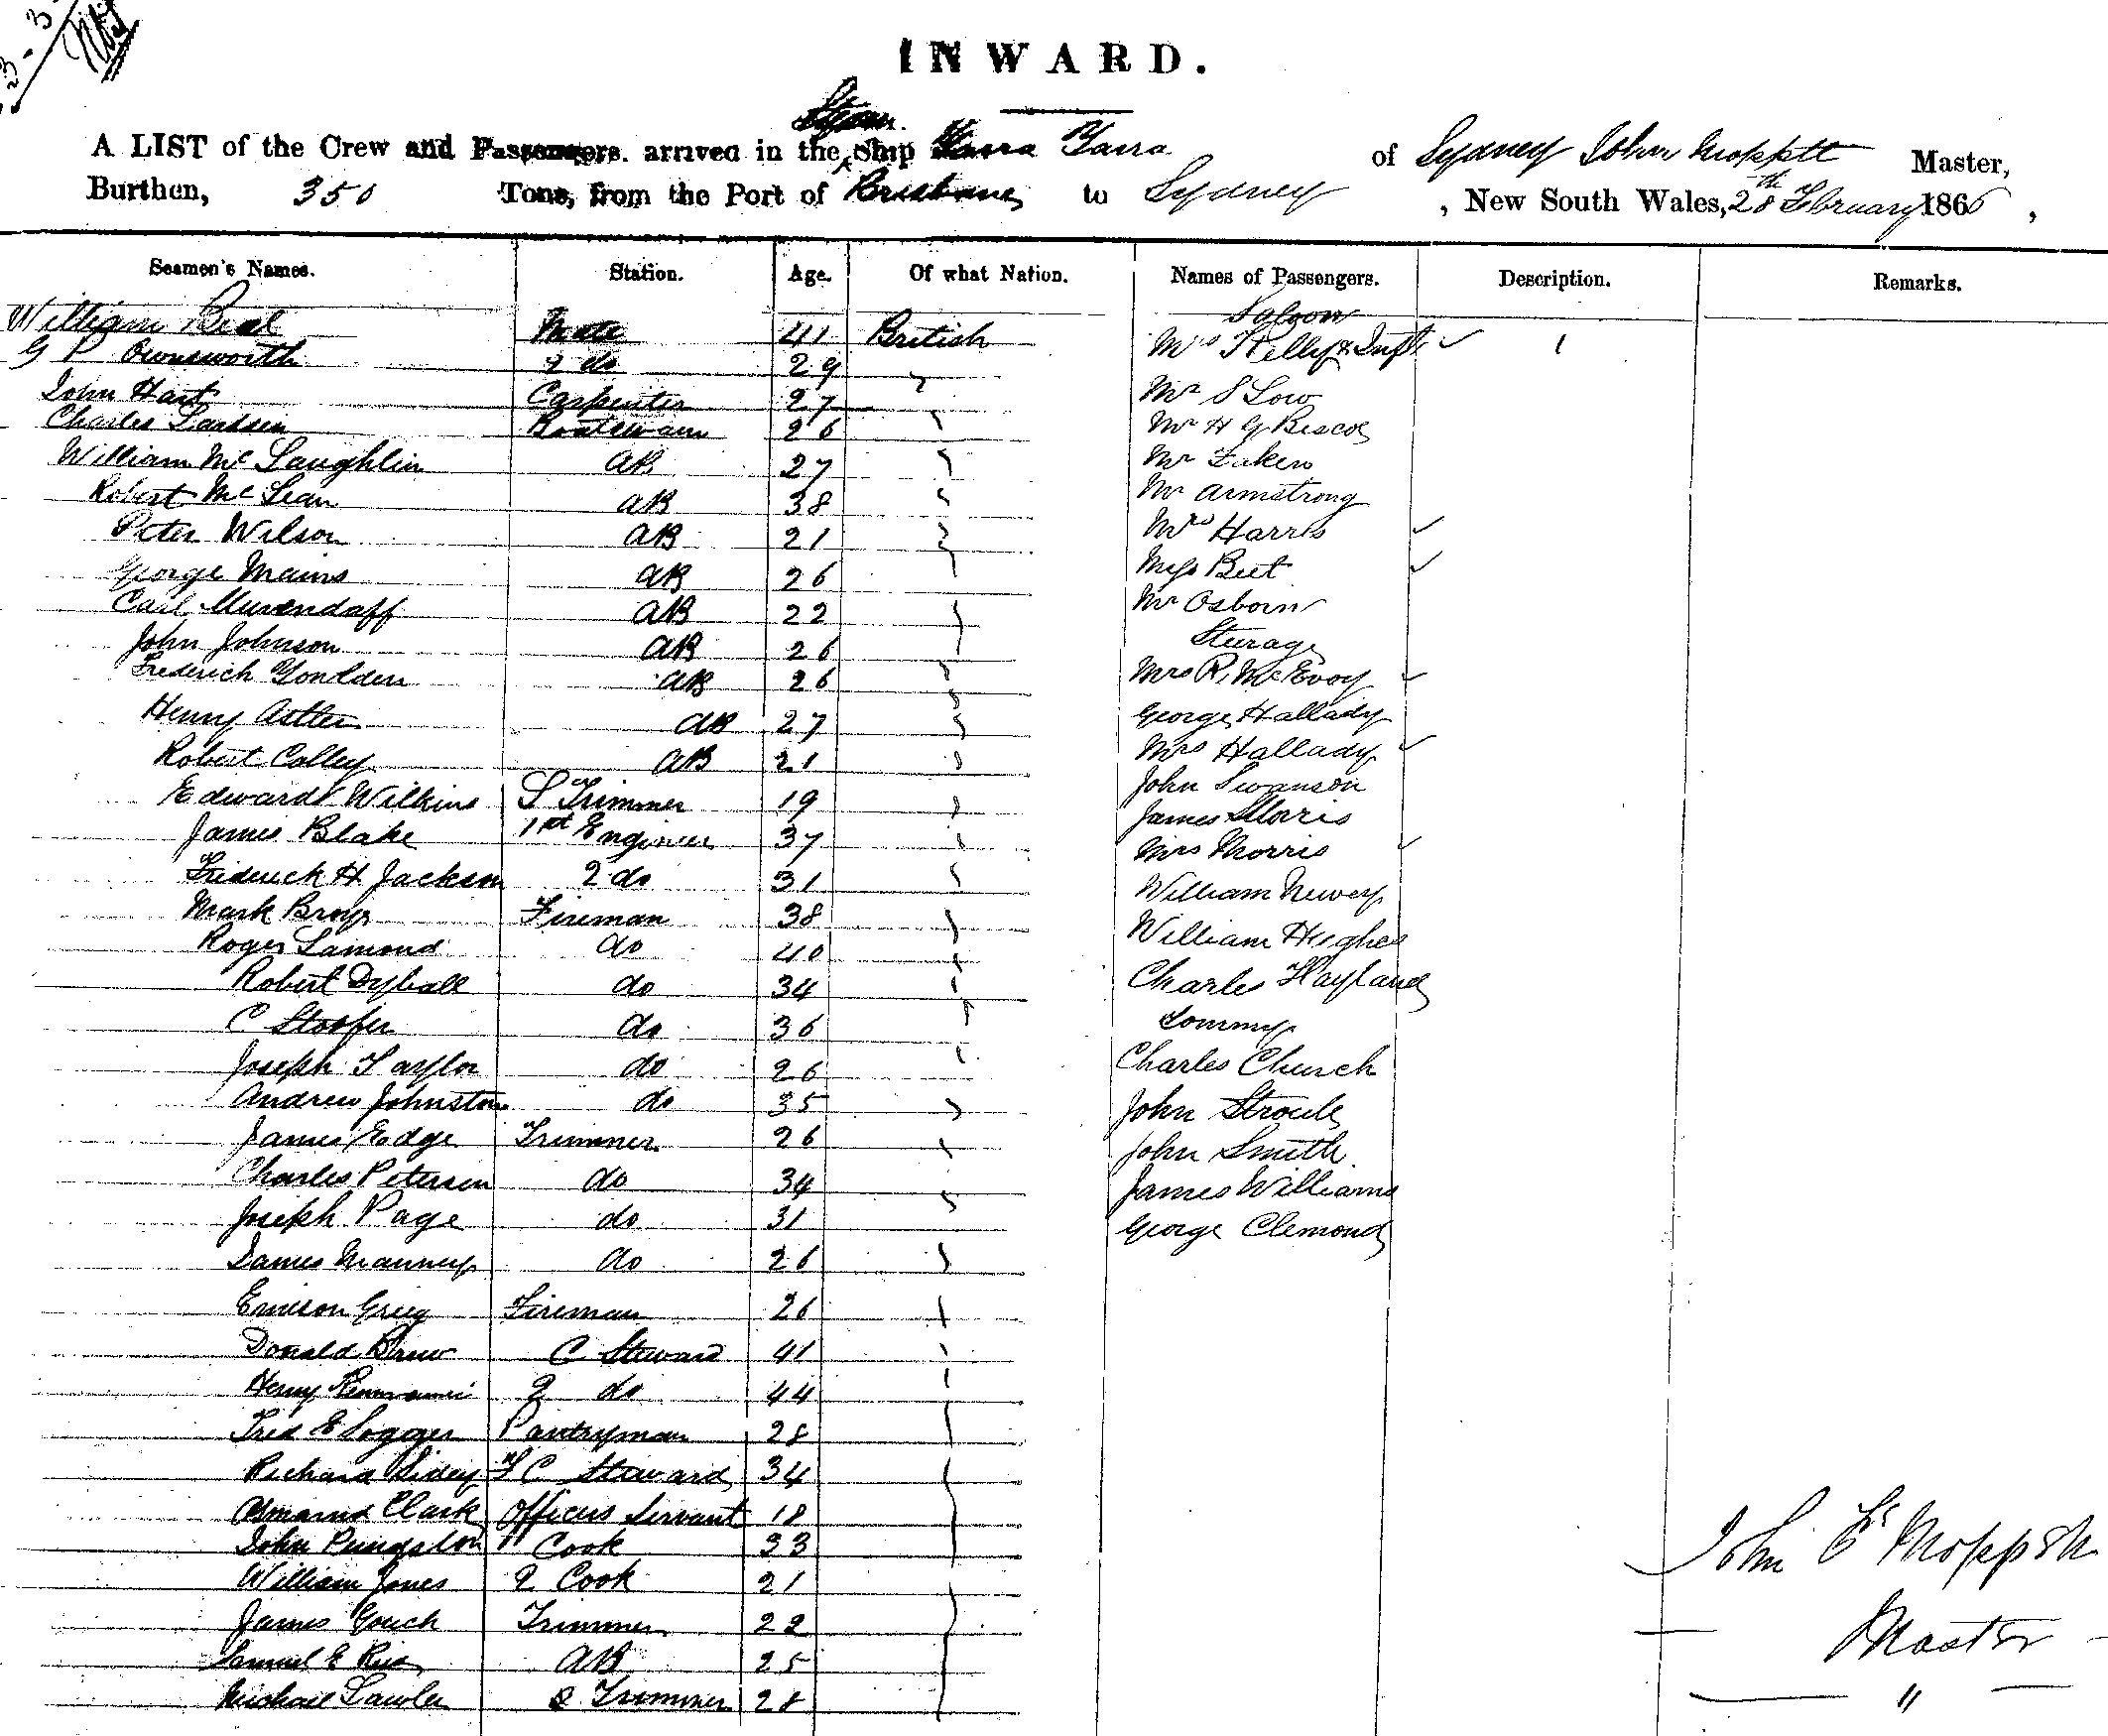 INWARD.
Steam
A LIST of the Crew and Passengers. arrived in the Ship Yarra Yarra of Sydney John Moppett Master,
Burthen, 350 Tons, from the Port of Brisbane to Sydney , New South Wales, 28th February 1866,
Seamen's Names. Station. Age. Of what Nation. Names of Passengers. Description. Remarks.
Saloon
William Beal Mate 41 British Mrs Kelly & Inft 1
G P Ownsworth 2 do 29
John Hart Carpenter 27 Mr S Low
Charles Boatswain 26 Mr H G Biscoe
William Mc Laughlin AB 27 Mr
Robert Mc Lean AB 38 Mr Armstrong
Peter Wilson AB 21 Mrs Harris
George Mains AB 26 Miss
Carl AB 22 Mr Osborn
Sturage
John Johnson AB 26
Frederich AB 26 Mrs R. McEvoy
Henry Astler AB 27 George Hallady
Robert Colley AB 21 Mrs Hallady
Edward Wilkins Trimmer 19 John Swanson
James Blake 1st Engineer 37 James Morris
Mrs Morris
Frederick H Jackson 2 do 31 William Newey
Mark Fireman 38
Roger Lamond do 40 William Hughes
Robert Dyball do 34 Charles Hayland
C do 36 Tommy
Joseph Taylor do 26 Charles Church
Andrew Johnston do 35 John
James Edge Trimmer 26 John Smith
Charles Petersen do 34 James Williams
Joseph Page do 31 George Clemond
James do 26
Greig Fireman 26
Donald C Steward 41
Henry 2 do 44
Fred E Pantryman 28
Richard C Steward 34
Clark Officers Servant 18
John Cook 33
William Jones 2 Cook 21
James Gouch Trimmer 22
Samuel E AB 25
Michael Lawler Trimmer 28
John Moppett
Master